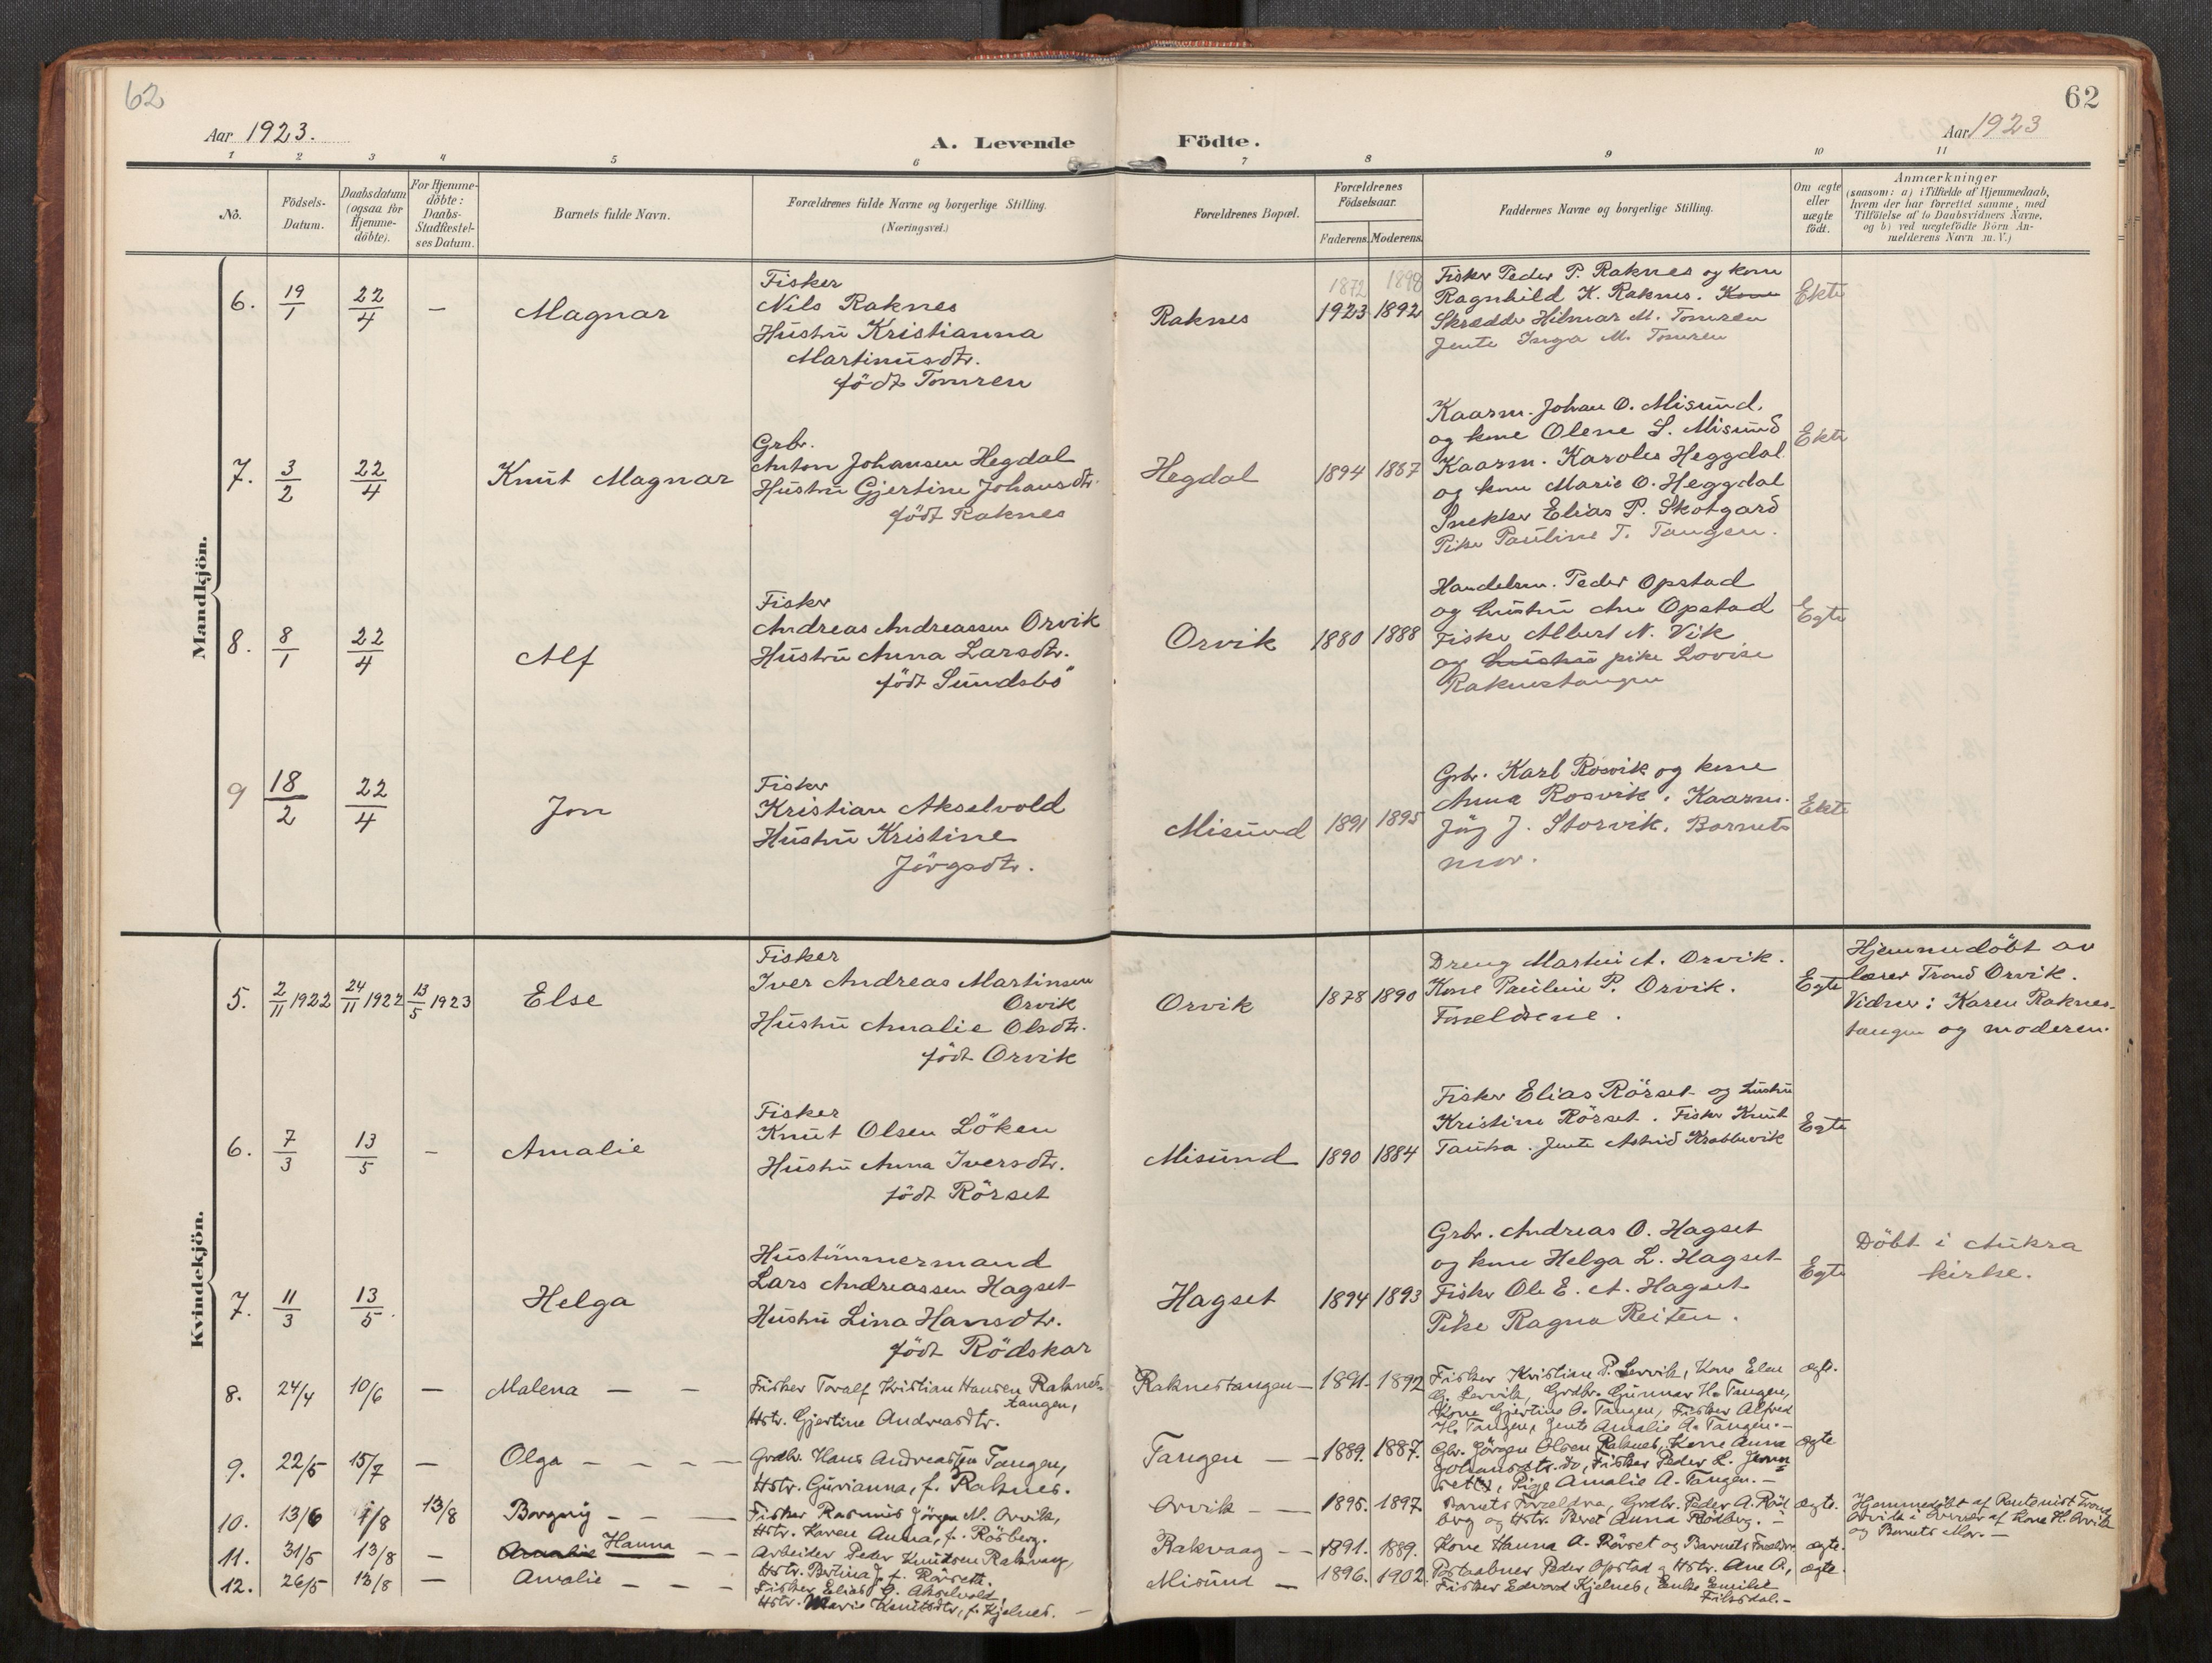 62
62
Aar 1923.
A. Levende
Födte.
Aar 1923
1 2 3 4 5 6 7 8 9 10 11
No.
Födsels-
Datum.
Daabsdatum
(ogsaa for
Hjemme-
döbte).
For Hjemme-
döbte:
Daabs-
Stadfæstel-
ses Datum.
Barnets fulde Navn.
Forældrenes fulde Navne og borgerlige Stilling.
(Næringsvei.)
Forældrenes Bopæl.
Forældrenes
Födselsaar.
Faderens. Moderens.
Faddernes Navne og borgerlige Stilling.
Om ægte
eller
uægte
födt.
Anmærkninger
(saasom: a) i Tilfælde af Hjemmedaab,
hvem der har forrettet samme, med
Tilföielse af to Daabsvidners Navne,
og b) ved uægtefödte Börn An-
melderens Navn m. V.)
Mandkjön.
6. 19/1 22/4 — Magnar
Fisker
Nils Raknes
Hustru Kristianna
Martinusdtr.
födt Tomren
Raknes
1872 1898
1923 1892
Fisker Peder P. Raknes og kone
Ragnhild K. Raknes. Kone
Skrædder Hilmar M. Tomren
Jente Inga M. Tomren
Ekte
7. 3/2 22/4 Knut Magnar
Grbr.
Anton Johansen Hegdal
Hustru Gjertine Johansdtr.
födt Raknes
Hegdal 1894 1887
Kaarm. Johan O. Misund,
og kone Olene S. Misund
Kaarm. Karoles Heggdal
og kone Marie O. Heggdal
Snekker Elias P. Skotgard
Pike Pauline T. Tangen.
Ekte
8. 8/1 22/4 Alf
Fisker
Andreas Andreassen Orvik
Hustru Anna Larsdtr.
födt Sundsbö
Orvik 1880 1888
Handelsm. Peder Opstad
og hustru Ane Opstad
Fisker Albert N. Vik
og hustru pike Lovise
Raknestangen
Egte
9 18/2 22/4 Jon
Fisker
Kristian Akselvold
Hustru Kristine
Jörgsdtr.
Misund 1891 1895
Grbr. Karl Rosvik og kone
Anna Rosvik. Kaarm.
Jörg J. Storvik. Barnets
mor.
Ekte
Kvindekjön.
5. 2/11 1922 24/11 1922 13/5 1923 Else
Fisker
Iver Andreas Martinsen
Orvik
Hustru Amalie Olsdtr.
födt Orvik
Orvik 1878 1890
Dreng Martin A. Orvik.
Kone Pauline P. Orvik.
Forældrene.
Egte
Hjemmedöbt av
lærer Trond Orvik.
Vidner: Karen Raknes-
tangen og moderen.
6. 7/3 13/5 — Amalie
Fisker
Knut Olsen Löken
Hustru Anna Iversdtr.
födt Rörset
Misund 1890 1884
Fisker Elias Rörset og hustru
Kristine Rörset. Fisker Knut
Tautra. Jente Astrid Krabbevik
Egte
7. 11/3 13/5. Helga
Hustömmermand
Lars Andreassen Hagset
Hustru Lina Hansdtr.
födt Rödskar
Hagset 1894 1893
Grbr. Andreas O. Hagset
og kone Helga L. Hagset
Fisker Ole E. A. Hagset
Pike Ragna Reiten.
Egte
Döbt i Aukra
kirke.
8. 24/4 10/6 — Malena — —
Fisker Toralf Kristian Hansen Raknes-
tangen,
Hstr. Gjertine Andreasdtr.
Raknestangen — 1891. 1892
Fisker Kristian P. Lervik, Kone Elen
G. Lervik, Grdbr. Gunnar H. Tangen,
Kone Gjertine A. Tangen, Fisker Alfred
H. Tangen, Jente Amalie A. Tangen. —
ægte.
9. 22/5 15/7 — Olga — — — —
Grdbr. Hans Andreassen Tangen,
Hstr. Gurianna, f. Raknes.
Tangen — — 1889. 1887.
Gbr. Jörgen Olsen Raknes, Kone Anna
Johansdtr. do, Fisker Peder L.
Pige Amalie A. Tangen. —
ægte
10. 13/6 1/8 13/8 Borgny — — —
Fisker Rasmus Jörgen M. Orvik,
Hstr. Karen Anna, f. Rösberg.
Orvik — — 1895. 1897.
Barnets Forældre, Grdbr. Peder A. Röd
berg og Hstr. Beret Anna Rödberg. —
ægte.
Hjemmedöbt af Trond
Orvik i Overvær af Kone H. Orvik
og Barnets Mor. —
11. 31/5 13/8 — Amalie Hanna — —
Arbeider Peder Knudsen Rakvaag,
Hstr. Berlina, f. Rörseth.
Rakvaag — — 1891. 1889.
Kone Hanna A. Rörset og Barnets Forældre.
ægte.
12. 26/5 13/8 — Amalie — — —
Fisker Elias G. Akselvold,
Hstr. Marie Knutsdtr, f. Kjelnes. —
Misund — 1896. 1902.
Postaabner Peder Opstad og Hstr. Ane A.,
Fisker Edvard Kjelnes, Enke Emilie
Frilsdal. —
ægte.